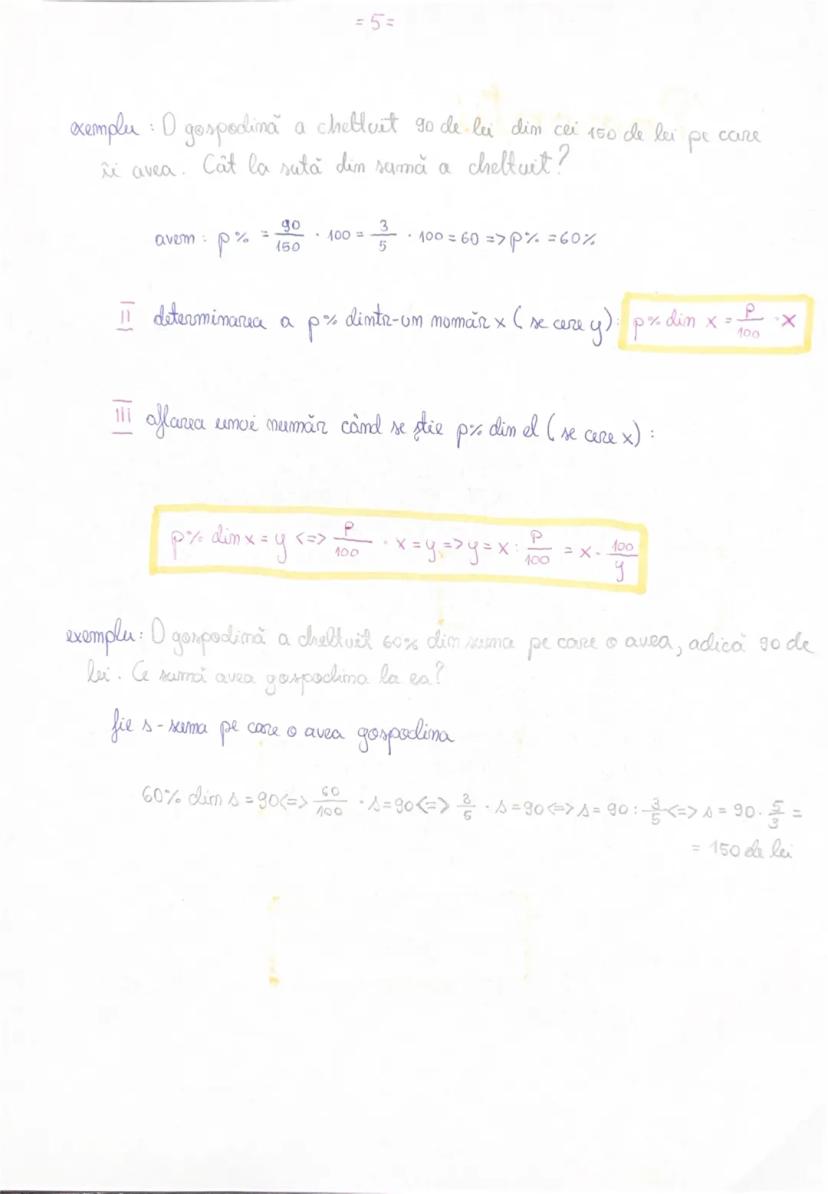 = 5 =
exemplu : O gospodină a cheltuit 90 de lei din cei 150 de lei pe care
îi avea. Cât la sută din sumă a cheltuit?
avem : p% = 90/150 · 100 = 3/5 · 100 = 60 => p% = 60%
II determinarea a p% dintr-un număr x ( se cere y) : p% din x = p/100 · x
III aflarea unui număr când se știe p% din el ( se cere x) :
p% din x = y <=> p/100 · x = y => y = x : p/100 = x · 100/y
exemplu : O gospodină a cheltuit 60% din suma pe care o avea, adică 90 de
lei. Ce sumă avea gospodina la ea?
fie s - suma pe care o avea gospodina
60% din s = 90 <=> 60/100 · s = 90 <=> 3/5 · s = 90 <=> s = 90 : 3/5 <=> s = 90 · 5/3 =
= 150 de lei